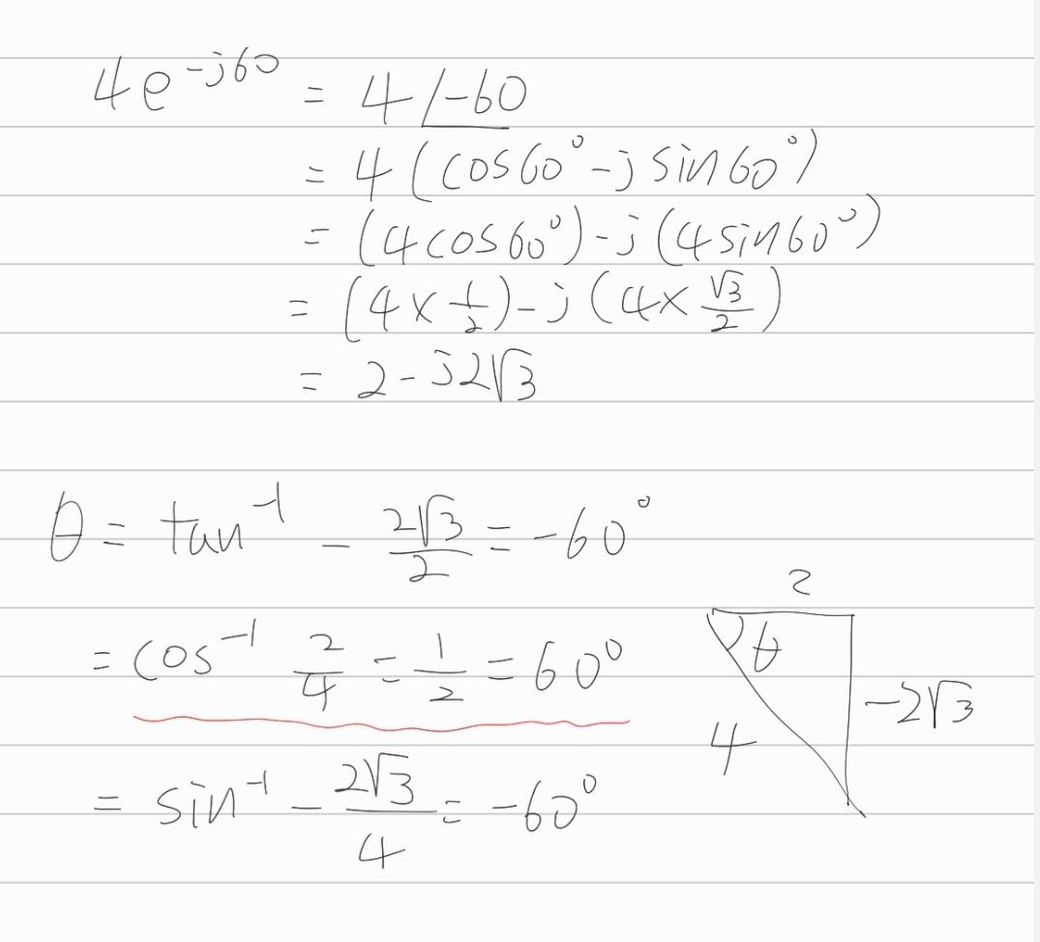 4e^-j60 = 4∠-60
= 4(cos60°-j sin60°)
= (4cos60°)-j(4sin60°)
= (4×1/2)-j(4×√3/2)
= 2-j2√3
θ = tan^-1 - 2√3/2 = -60°
= cos^-1 2/4 = 1/2 = 60°
= sin^-1 - 2√3/4 = -60°
2
θ
4
-2√3